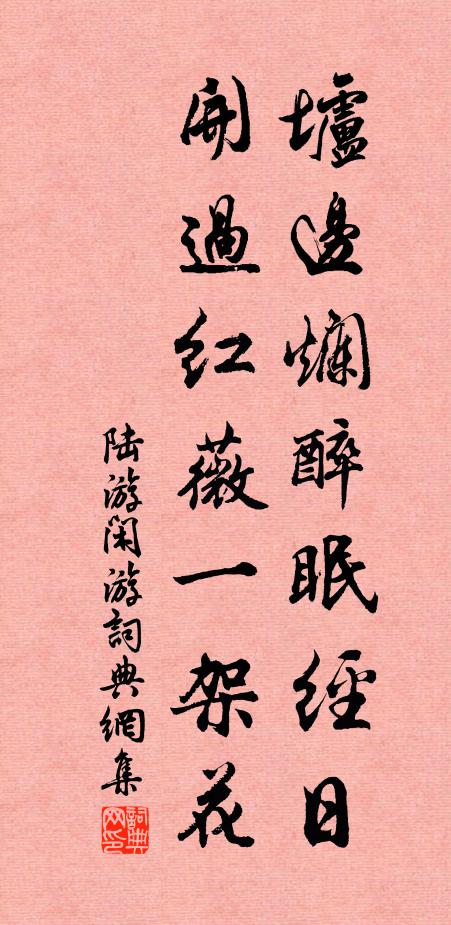 壚邊爛醉眠經日
開過紅薇一架花
陆游閑游詞典網集
詞典网印